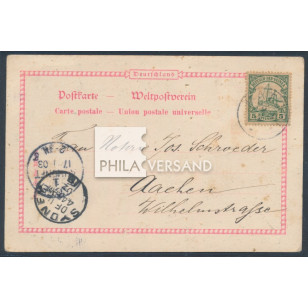 Deutschland
Postkarte — Weltpostverein
Carte postale — Union postale universelle
Herrn Notar Jos. Schroeder
Aachen
Wilhelmstrasse
PHILA VERSAND
SYDNEY
5 5